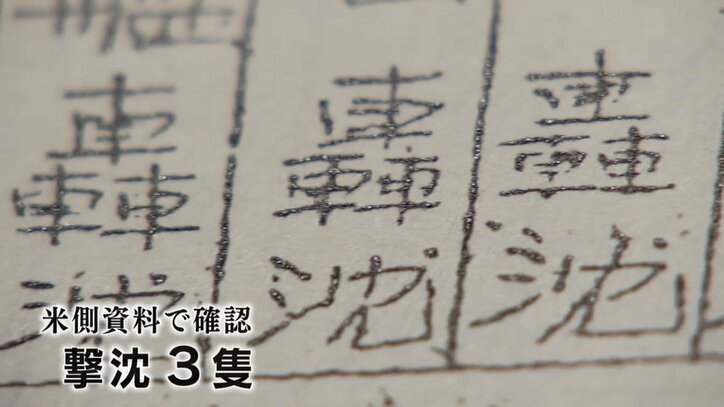 轟沈
轟沈
轟沈
米側資料で確認
撃沈３隻